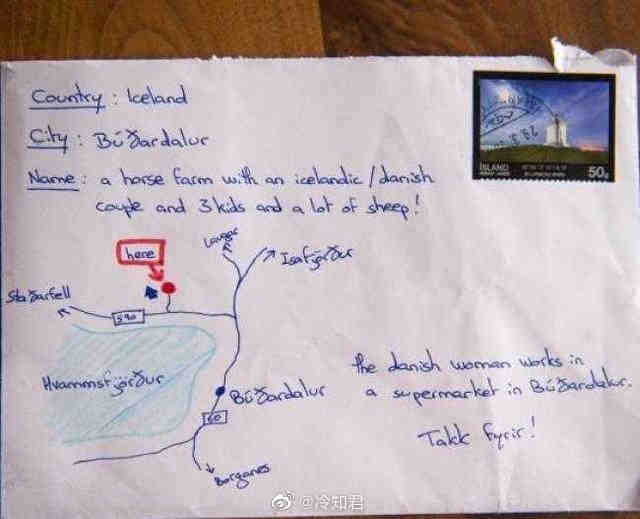 Country : Iceland
City : Búðardalur
Name : a horse farm with an icelandic/danish
couple and 3 kids and a lot of sheep!
ÍSLAND
50g
here
Laugar
Ísafjörður
Staðarfell
590
Hvammsfjörður
Búðardalur
60
Borganes
the danish woman works in
a supermarket in Búðardalur.
Takk fyrir!
@冷知君